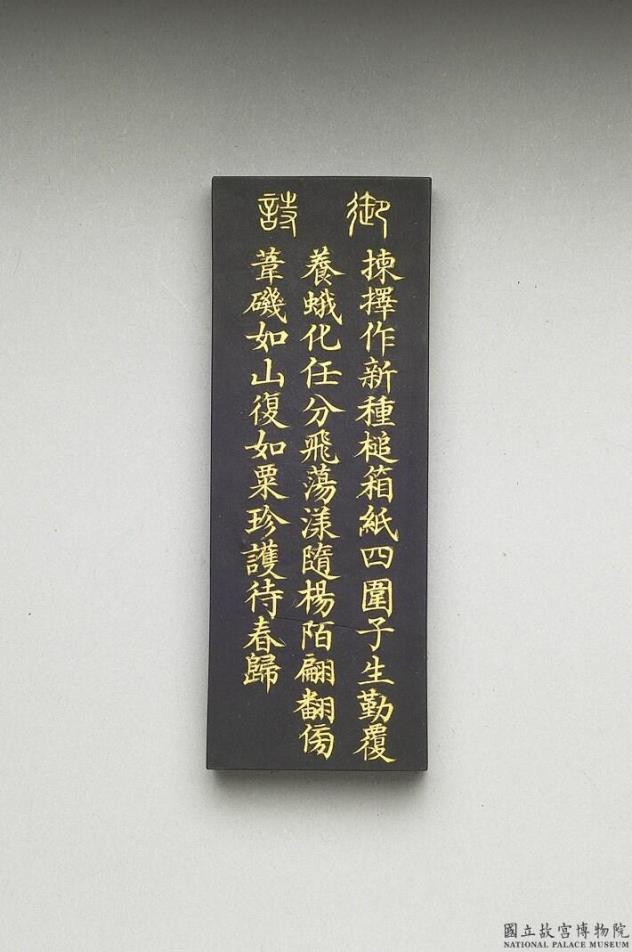 御詩
揀擇作新種槌箱紙四圍子生勤覆
養蛾化任分飛蕩漾隨楊陌翩翻傍
葦磯如山復如粟珍護待春歸
國立故宮博物院
NATIONAL PALACE MUSEUM